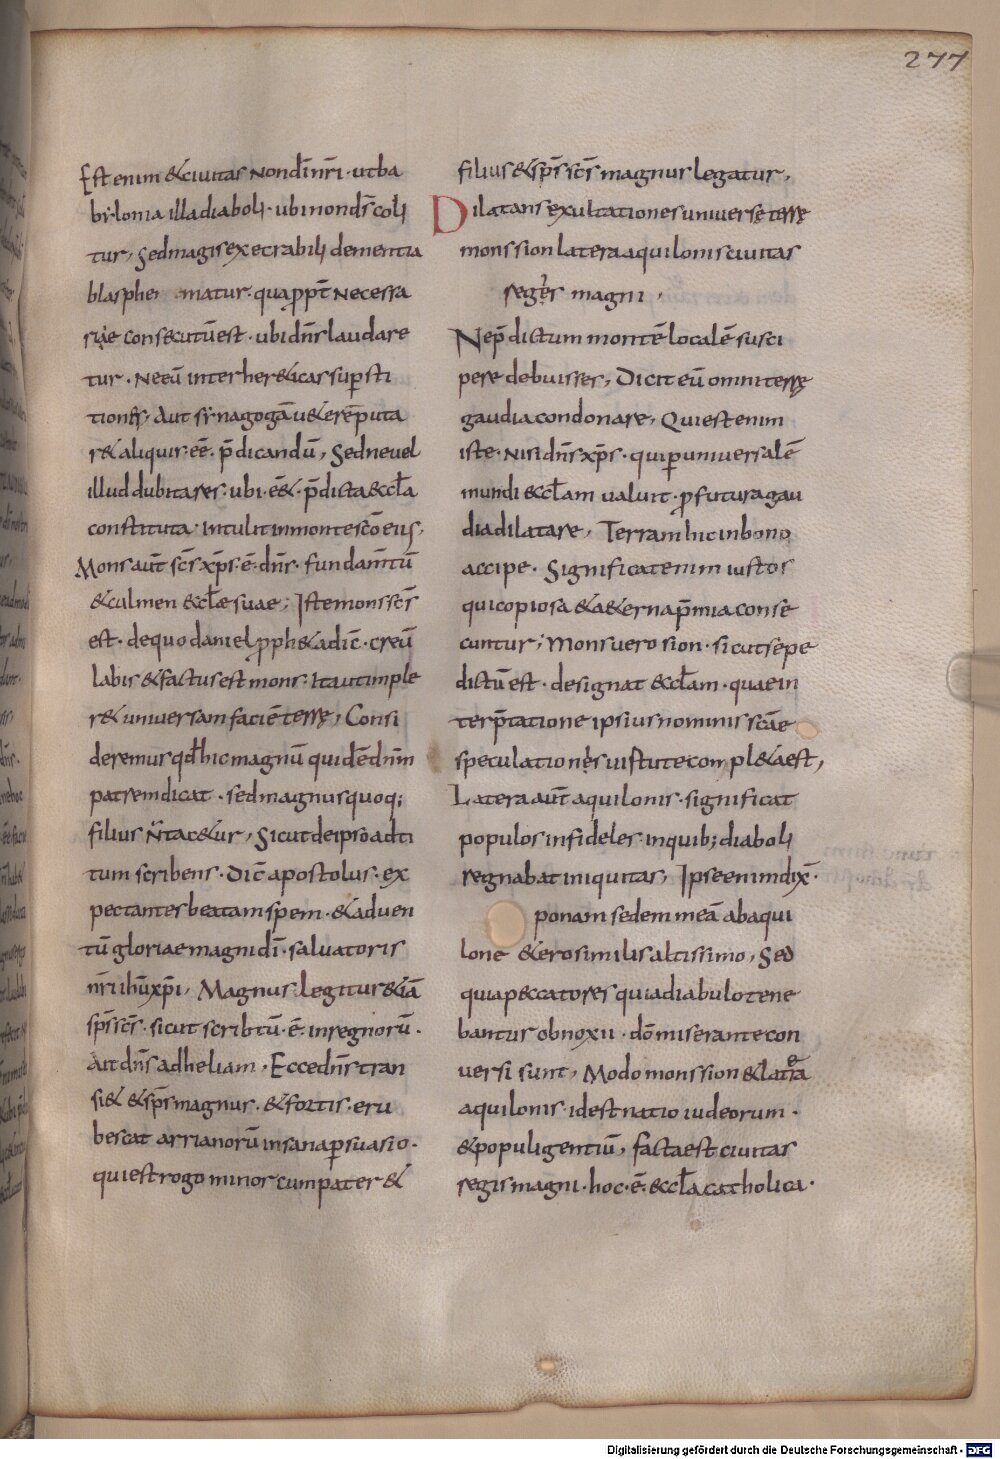 277
Est enim & ciuitas non dñi nr̃i · ut ba
bylonia illa diaboli · ubi non ds̄ coli
tur, Sed magis execrabili dementia
blasphematur · quapp̄t necessa
rie consecutū est · ubi dñs laudare
tur · Ne eū inter her&icas supersti
tiones, Aut synagogā u&erē puta
r& aliquis · eē · p̄dicandū, Sed ne uel
illud dubitares · ubi · ē& · p̄dicta &ccl̄a
constituta · intulit in monte sc̄o eius,
Mons aut̄ sc̄s xp̄s · ē · dñs · fundam̄tū
& culmen &ccl̄ae suae; Iste mons sc̄s
est · de quo daniel pph&a dic̄ · creuit
labis & factus est mons · Ita ut imple
r& uniuersam faciē terrę, Consi
deremus qd̄ hic magnū quidē dnm̄
patrem dicat · sed magnus quoq;
filius n̄ tac&ur, Sicut de ipso ad ti
tum scribens · dic̄ apostolus · ex
pectantes beatam spem · & aduen
tū gloriae magni dī · salvatoris
nr̄i ihū xp̄i, Magnus legitur &iā
sp̄s sc̄s · sicut scribtū · ē · in regnorū ·
Ait dñs ad heliam · Ecce dñs tran
si& & sp̄s magnus · & fortis · eru
bescat arrianorū insana psuasio ·
qui est rogo minor cum pater &
filius & sp̄s sc̄s magnus legatur,
Dilatans exultationes uniuersę terrę
mons sion latera aquilonis ciuitas
regis magni ·
Nep̄dictum montē localē susci
pere debuisses, Dicit eū omni terrę
gaudia condonare, Qui est enim
iste · nisi dñs xp̄s · qui p uniuersalē
mundi &ccl̄am ualuit · p futura gau
dia dilatare, Terram hic in bono
accipe · Significat enim iustos
qui copiosa & a&erna p̄mia conse
cuntur; Mons uero sion · sicut sepe
dictū est · designat &ccl̄am · quae in
terp̄tatione ipsius nominis sc̄ae
speculationis uirtute compl&a est,
Latera aut̄ aquilonis · significat
populos infideles · in quib; diaboli
regnabat iniquitas, Ipse enim dix̄ ·
ponam sedem meā ab aqui
lone & ero similis altissimo, Sed
quia p&ccatores quia diabulo tene
bantur obnoxii · dō miserante con
uersi sunt, Modo mons sion & latera
aquilonis · id est natio iudeorum ·
& populi gentiū, facta est ciuitas
regis magni · hoc · ē · &ccl̄a catholica ·
Digitalisierung gefördert durch die Deutsche Forschungsgemeinschaft - DFG